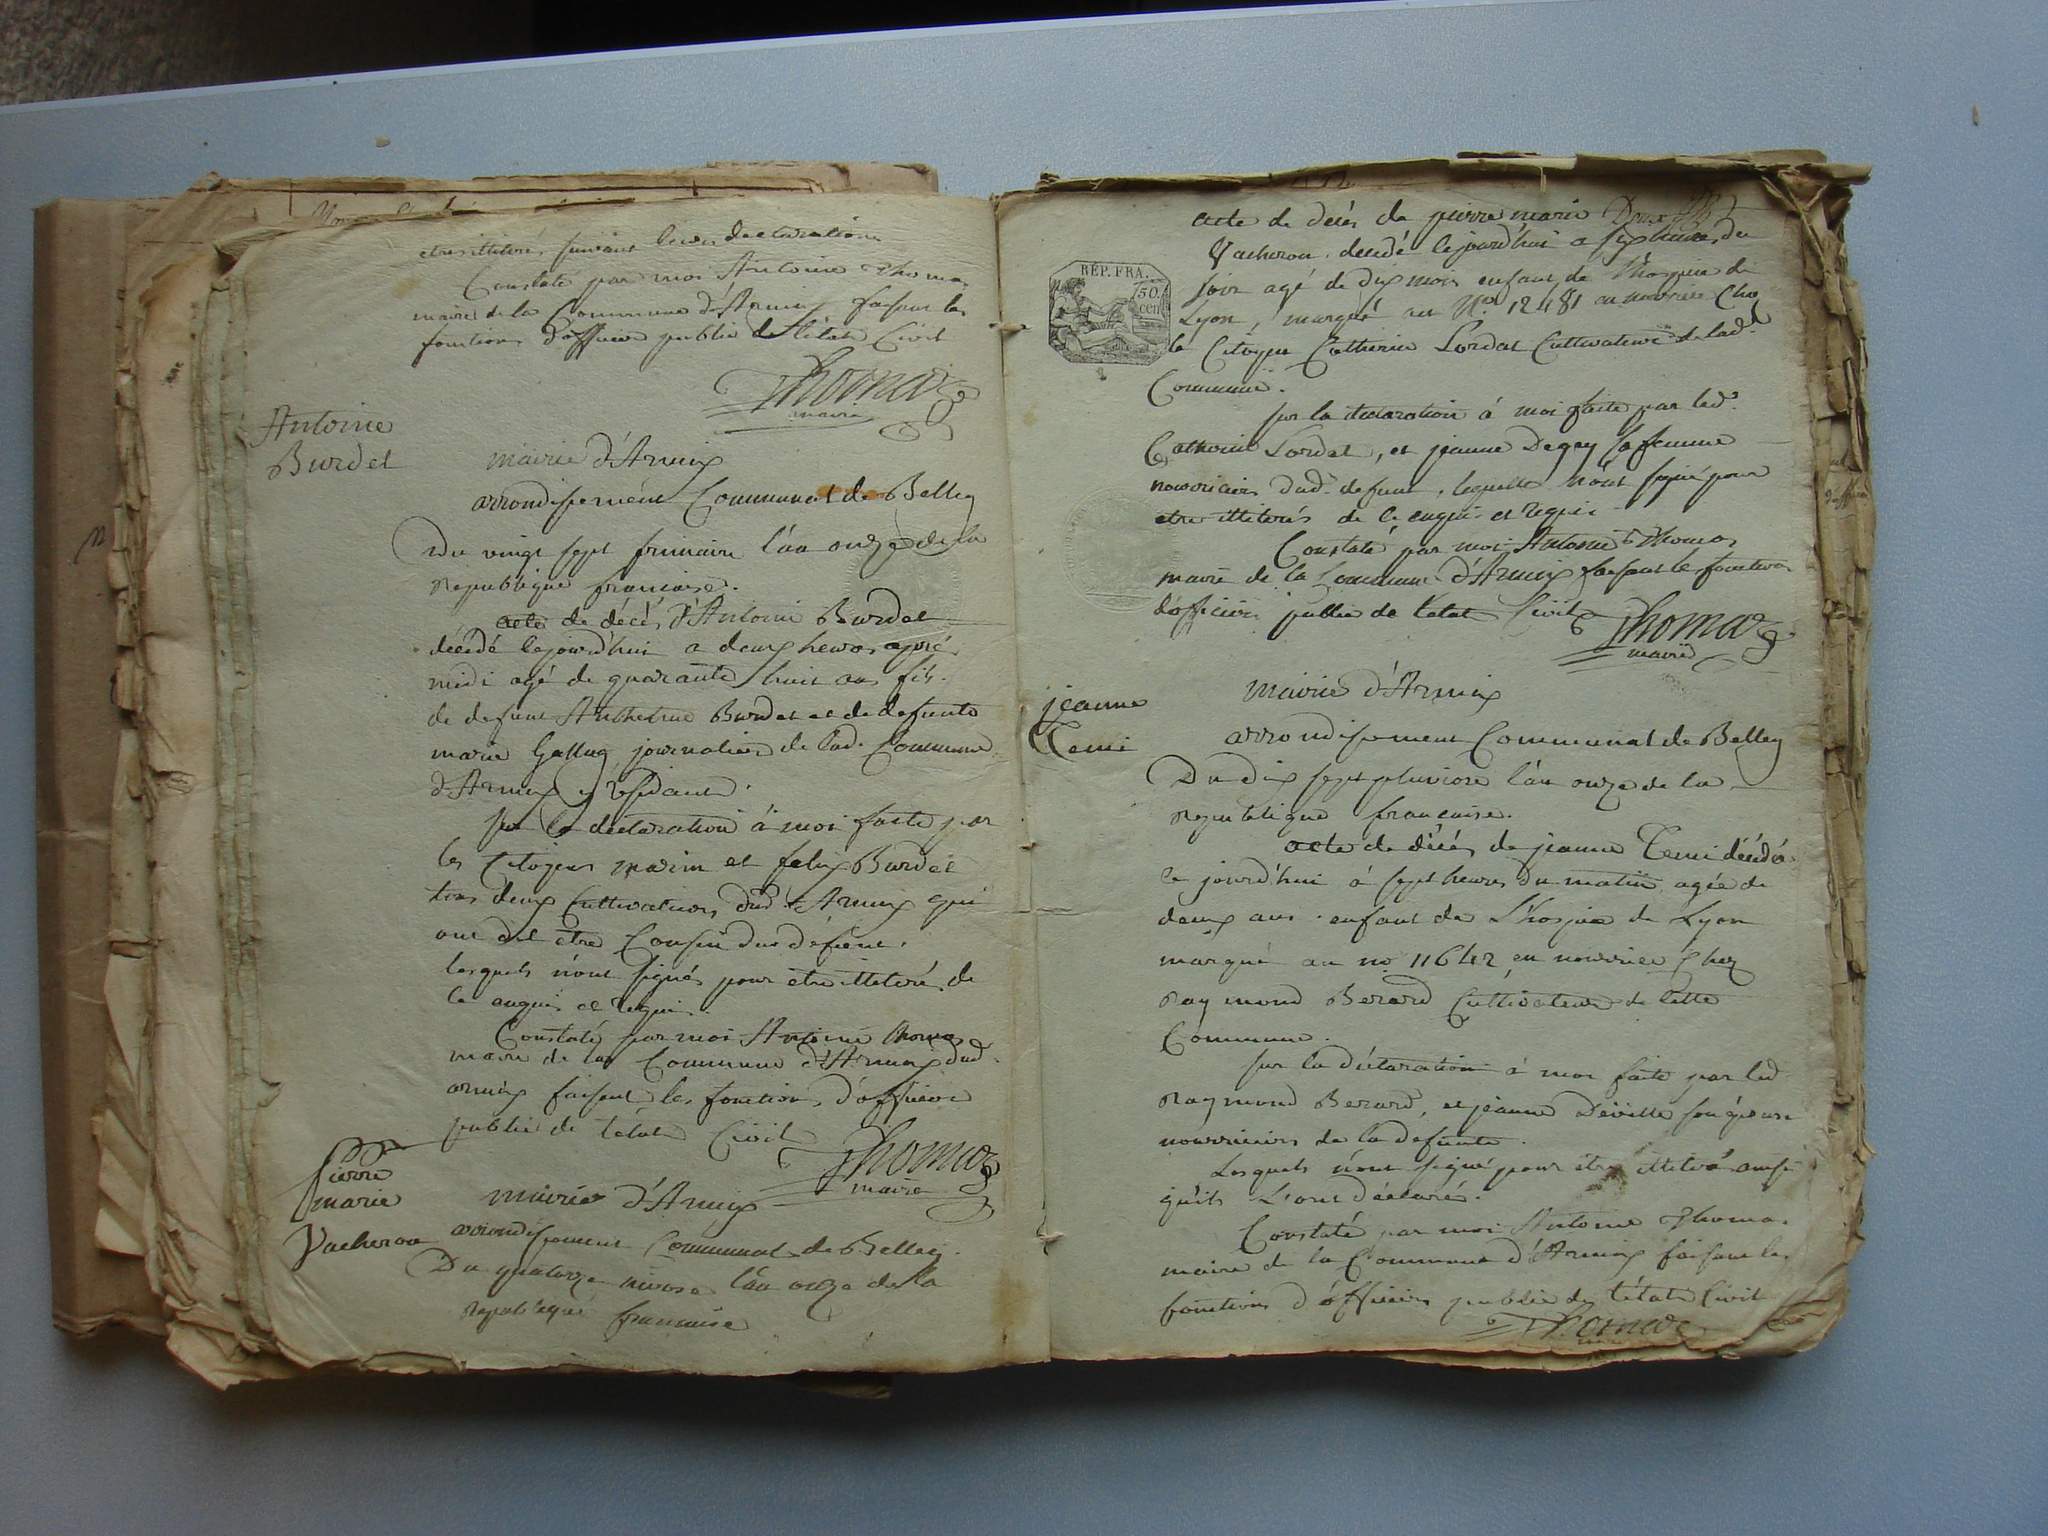 etre illiterés suivant leurs declarations
Constaté par moi Antoine Thomas
maire de la Commune d'Armix faisant les
fonctions d'officier public de l'état Civil
Thomas
maire
Antoine
Burdet
mairie d'Armix
arrondissement Communal de Belley
Du vingt sept frimaire l'an onze de la
republique francaise.
acte de décés d'Antoine Burdet
décédé cejourd'hui a deux heures aprés
midi agé de quarante huit ans fils
de defunt Anthelme Burdet et de defunte
marie Gallay journalier de lad. Commune
d'Armix y residant.
sur la déclaration à moi faite par
les Citoyens marin et felix Burdet
tous deux Cultivateurs dud. Armix qui
ont dit être Cousin dud défunt.
lesquels n'ont signés pour etre illiteré de
ce enquis et requis.
Constaté par moi Antoine Thomas
maire de la Commune d'Armix dud.
armix faisant les fonctions d'officier
public de l'état Civil
Thomas
maire
pierre
marie
Vacheron
mairie d'Armix
arrondissement Communal de Belley.
Du quatorze nivose l'an onze de la
republique francaise
acte de décés de pierre marie
Vacheron décédé cejourd'hui a six heures du
soir agé de dix mois enfant de l'hospice de
Lyon, marqué au No. 12481 en nourrice Chez
le Citoyen Catherin Lordet Cultivateur de lad.
Commune.
RÉP. FRA.
50.
cen
sur la declaration à moi faite par led.
Catherin Lordet, et jeanne Degey sa femme
nourriciers dud. defunt, lesquels n'ont signé pour
etre illiterés de ce enquis et requis.
Constaté par moi Antoine Thomas
maire de la Commune d'Armix faisant les fonctions
d'officier public de l'état Civil
Thomas
maire
jeanne
Temi
mairie d'Armix
arrondissement Communal de Belley
Du dix sept pluviose l'an onze de la
republique francaise.
acte de décés de jeanne Temi décédée
ce jourd'hui à sept heures du matin agée de
deux ans enfant de l'hospice de Lyon
marqué au no. 11642 en nourrice Chez
Raymond Berard Cultivateur de cette
Commune.
sur la déclaration à moi faite par led
Raymond Berard, et jeanne Deville son épouse
nourriciers de la defunte.
Lesquels n'ont signé pour etre illiteré ainsi
qu'ils l'ont déclarés.
Constaté par moi Antoine Thomas
maire de la Commune d'Armix faisant les
fonctions d'officier public de l'état Civil
Thomas